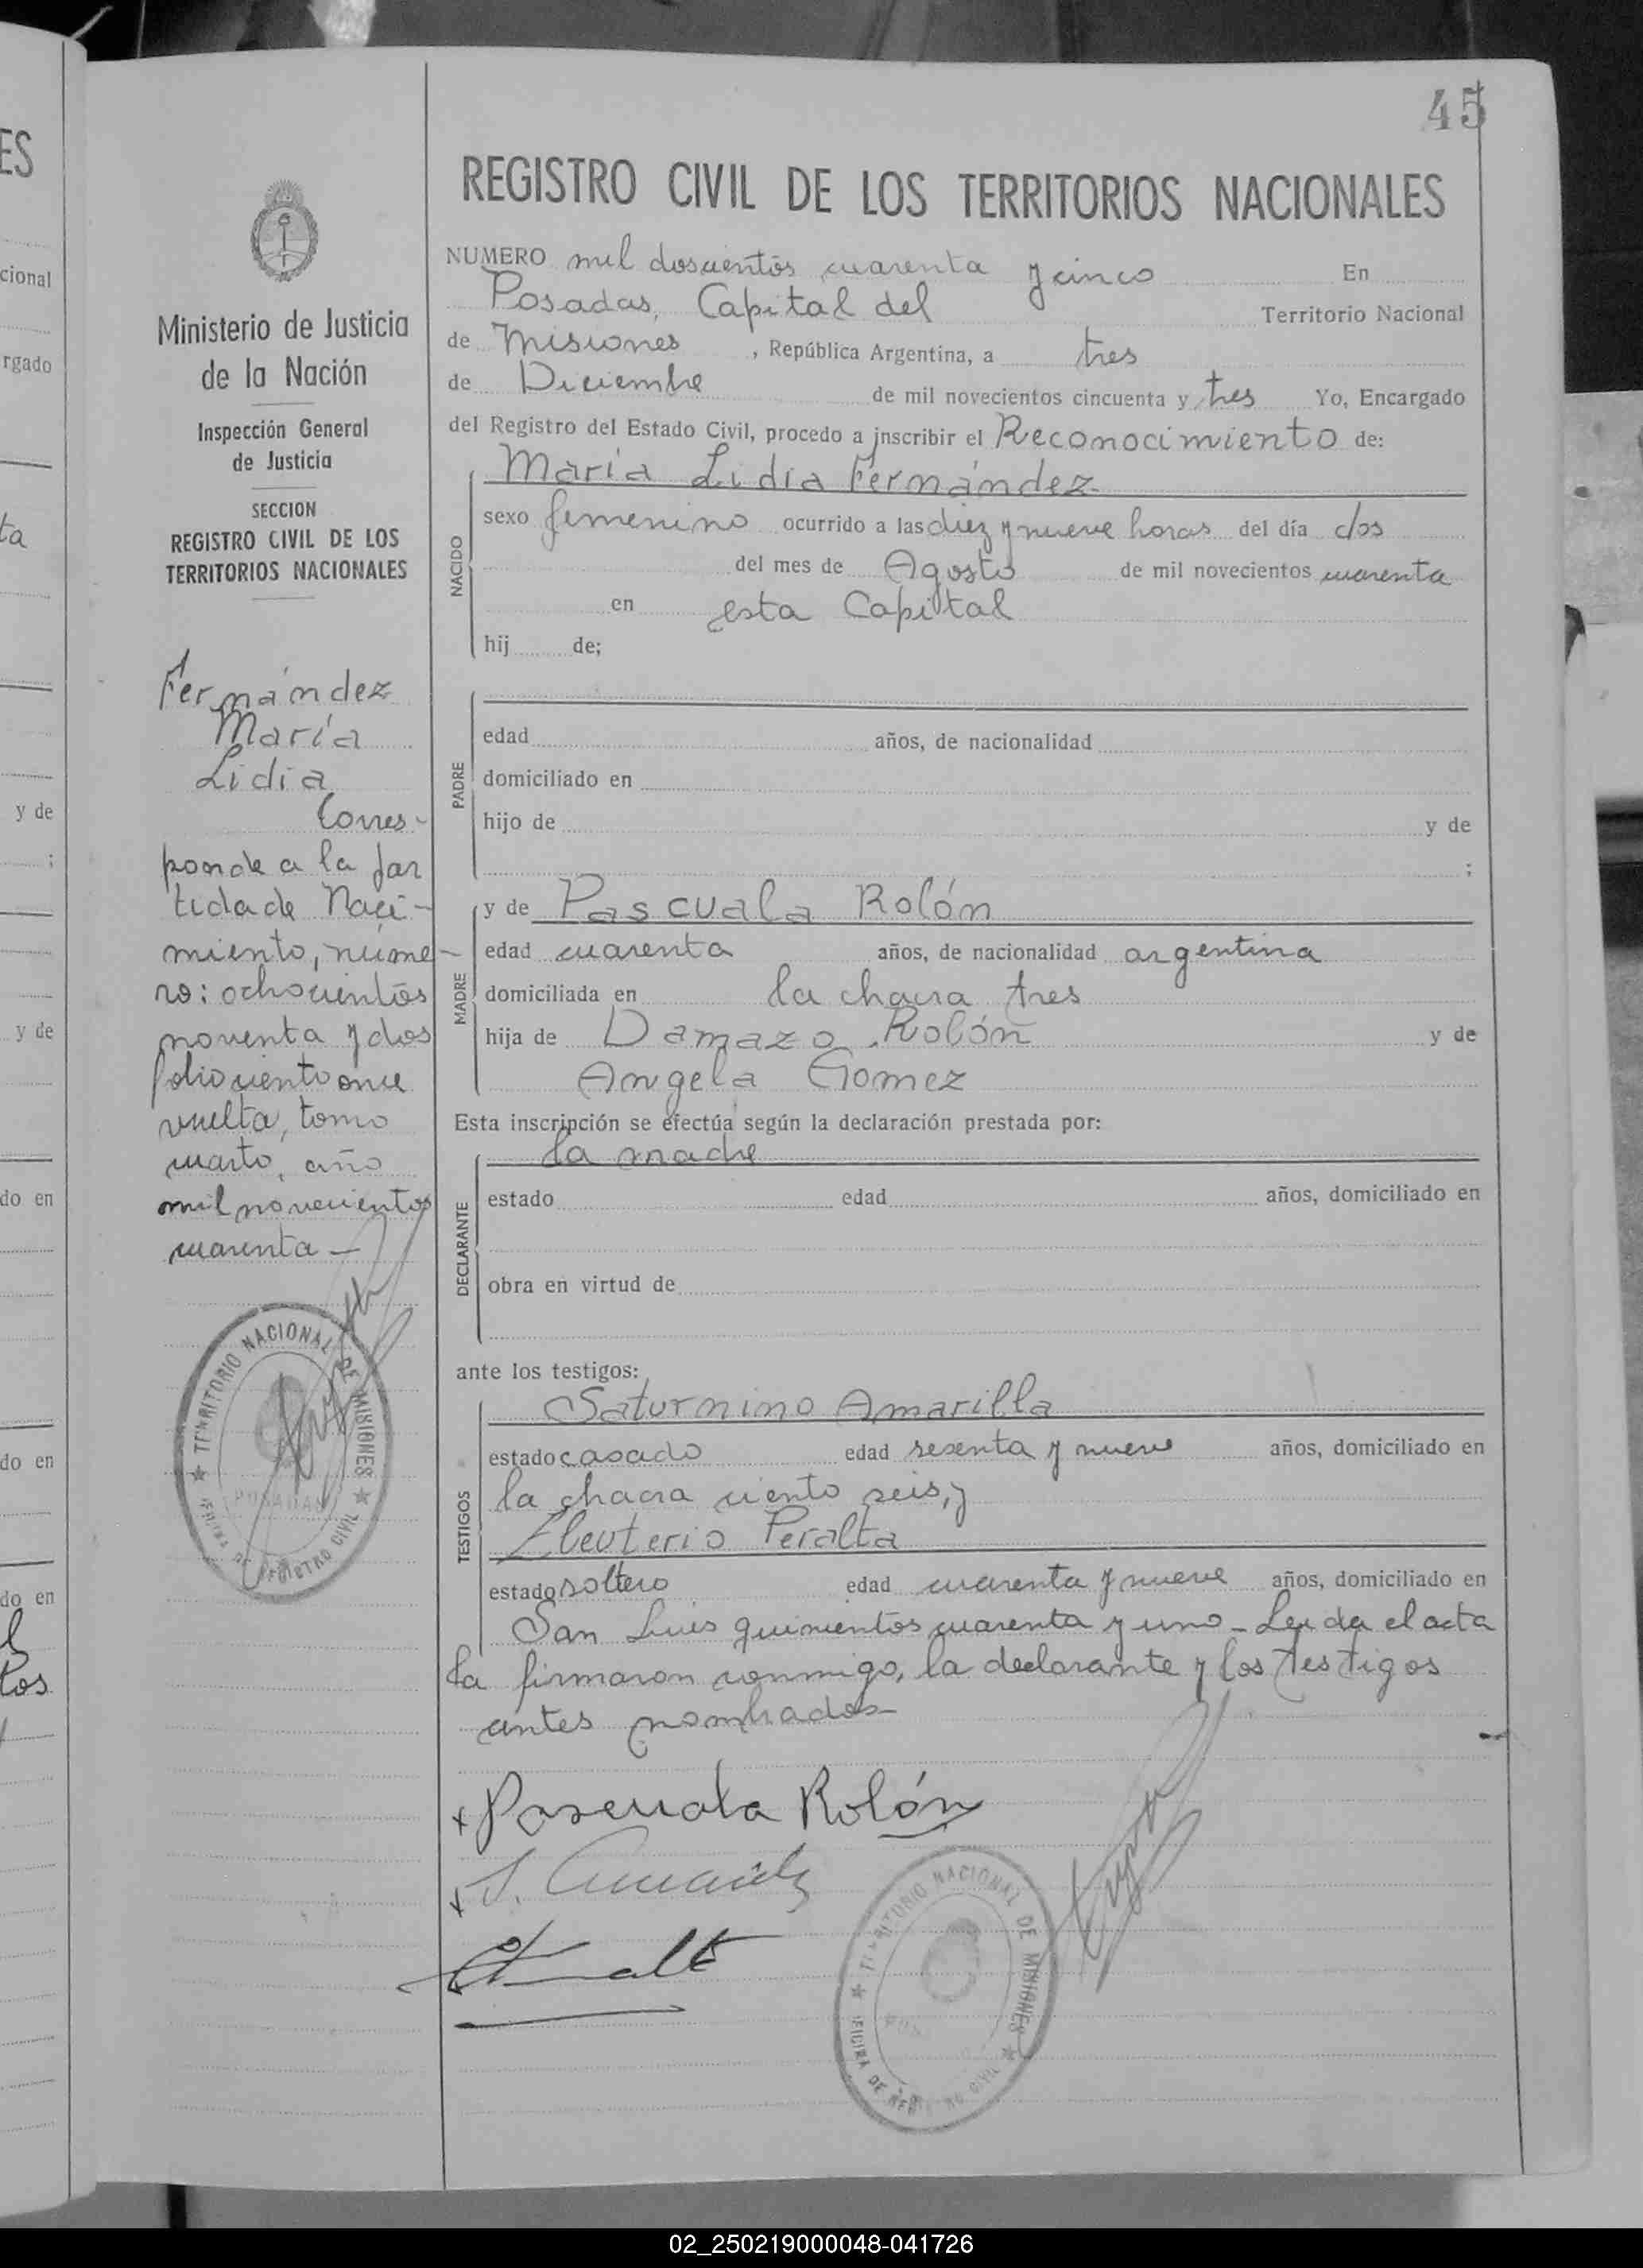 45
REGISTRO CIVIL DE LOS TERRITORIOS NACIONALES
NUMERO mil doscientos cuarenta y cinco En
Posadas, Capital del Territorio Nacional
de Misiones, República Argentina, a tres
de Diciembre de mil novecientos cincuenta y tres Yo, Encargado
del Registro del Estado Civil, procedo a inscribir el Reconocimiento de:
María Lidia Fernández
NACIDO
sexo femenino ocurrido a las diez y nueve horas del día dos
del mes de Agosto de mil novecientos cuarenta
en esta Capital
hij de;
PADRE
edad años, de nacionalidad
domiciliado en
hijo de y de
;
MADRE
y de Pascuala Rolón
edad cuarenta años, de nacionalidad argentina
domiciliada en la chacra tres
hija de Damazo Rolón y de
Angela Gomez
Esta inscripción se efectúa según la declaración prestada por:
la madre
DECLARANTE
estado edad años, domiciliado en
obra en virtud de
ante los testigos:
Saturnino Amarilla
TESTIGOS
estado casado edad sesenta y nueve años, domiciliado en
la chacra ciento seis, y
Eleuterio Peralta
estado soltero edad cuarenta y nueve años, domiciliado en
San Luis quinientos cuarenta y uno - Leida el acta
la firmaron conmigo, la declarante y los testigos
antes nombrados-
x Pascuala Rolón
x S. Amarilla
TERRITORIO NACIONAL DE MISIONES
OFICINA DE REGISTRO CIVIL
Ministerio de Justicia
de la Nación
Inspección General
de Justicia
SECCION
REGISTRO CIVIL DE LOS
TERRITORIOS NACIONALES
Fernández
María
Lidia
Corres-
ponde a la par
tida de Naci-
miento, núme-
ro: ochocientos
noventa y dos
folio ciento once
vuelta, tomo
cuarto, año
mil novecientos
cuarenta -
TERRITORIO NACIONAL DE MISIONES
POSADAS
OFICINA DE REGISTRO CIVIL
ES
cional
rgado
ta
y de
;
y de
do en
do en
do en
los
02_250219000048-041726